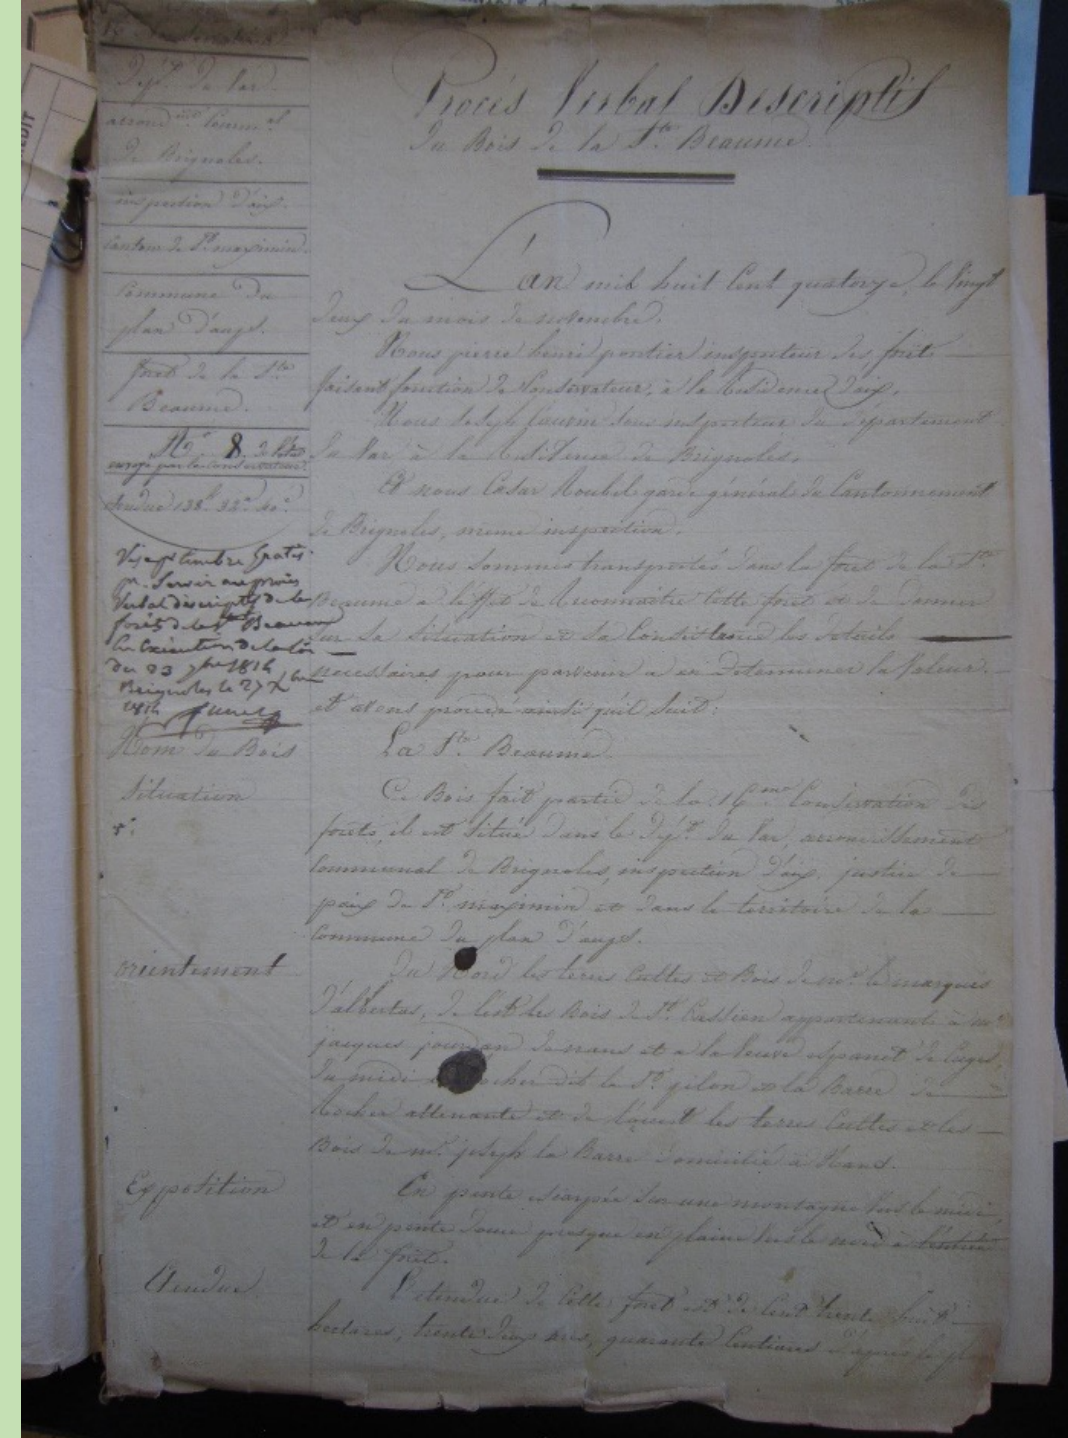 Dépt. du Var
arrond. Commal
de Brignoles.
inspection d'aix.
Canton de St. maximin.
Commune du
plan d'aups.
forêt de la Ste
Beaume.
No. 8. de l'état
envoyé par le Conservateur.
étendue 138h. 32a. 40c.
Visa p. timbre Gratis
pr. Servir au procès
Verbal descriptif de la
forêt de la Ste Beaume
En Exécution de la loi
du 23 7bre 1814
Brignoles le 27 Xbre
1814
Procès Verbal Descriptif
du Bois de la Ste. Beaume.
L'an mil huit Cent quatorze, le Vingt
deux du mois de novembre.
Nous pierre henri pontier inspecteur des forêts
faisant fonction de Conservateur, à la Residence d'aix.
Nous Joseph sous inspecteur du departement
du Var à la Residence de Brignoles.
Et nous César Roubel garde général du Cantonnement
de Brignoles, meme inspection.
Nous Sommes transportés dans la forêt de la Ste
Beaume a l'éffet de Reconnaitre Cette forêt et de donner
sur Sa Situation et Sa Consistance les details
necessaires pour parvenir a en determiner la Valeur.
et avons procédé ainsi qu'il Suit:
Nom du Bois
La Ste. Beaume.
Situation
Ce Bois fait partie de la 16me. Conservation des
forêts, il est Situé dans le Dépt. du Var, arrondissement
Communal de Brignoles, inspection d'aix, justice de
paix de St. maximin et dans le territoire de la
Commune du plan d'aups.
orientement
Du Nord les terres Cultes et Bois de mr. le marquis
d'albertas, de l'est les Bois de St. Cassien appartenants à mr.
jacques jourdan de nans et a la Veuve espanet de Cuges,
du midi rocher dit le St. pilon et la Barre de
Rocher attenante et de l'ouest les terres Cultes et les
Bois de mr. joseph la Barre domicilié à Nans.
Expotition
En pente escarpée Sur une montagne Vers le midi,
et en pente douce presque en plaine Vers le nord à l'entrée
de la forêt.
Etendue
L'etendue de Cette forêt est de Cent trente huit
hectares, trente deux ares, quarante Centiares d'après le